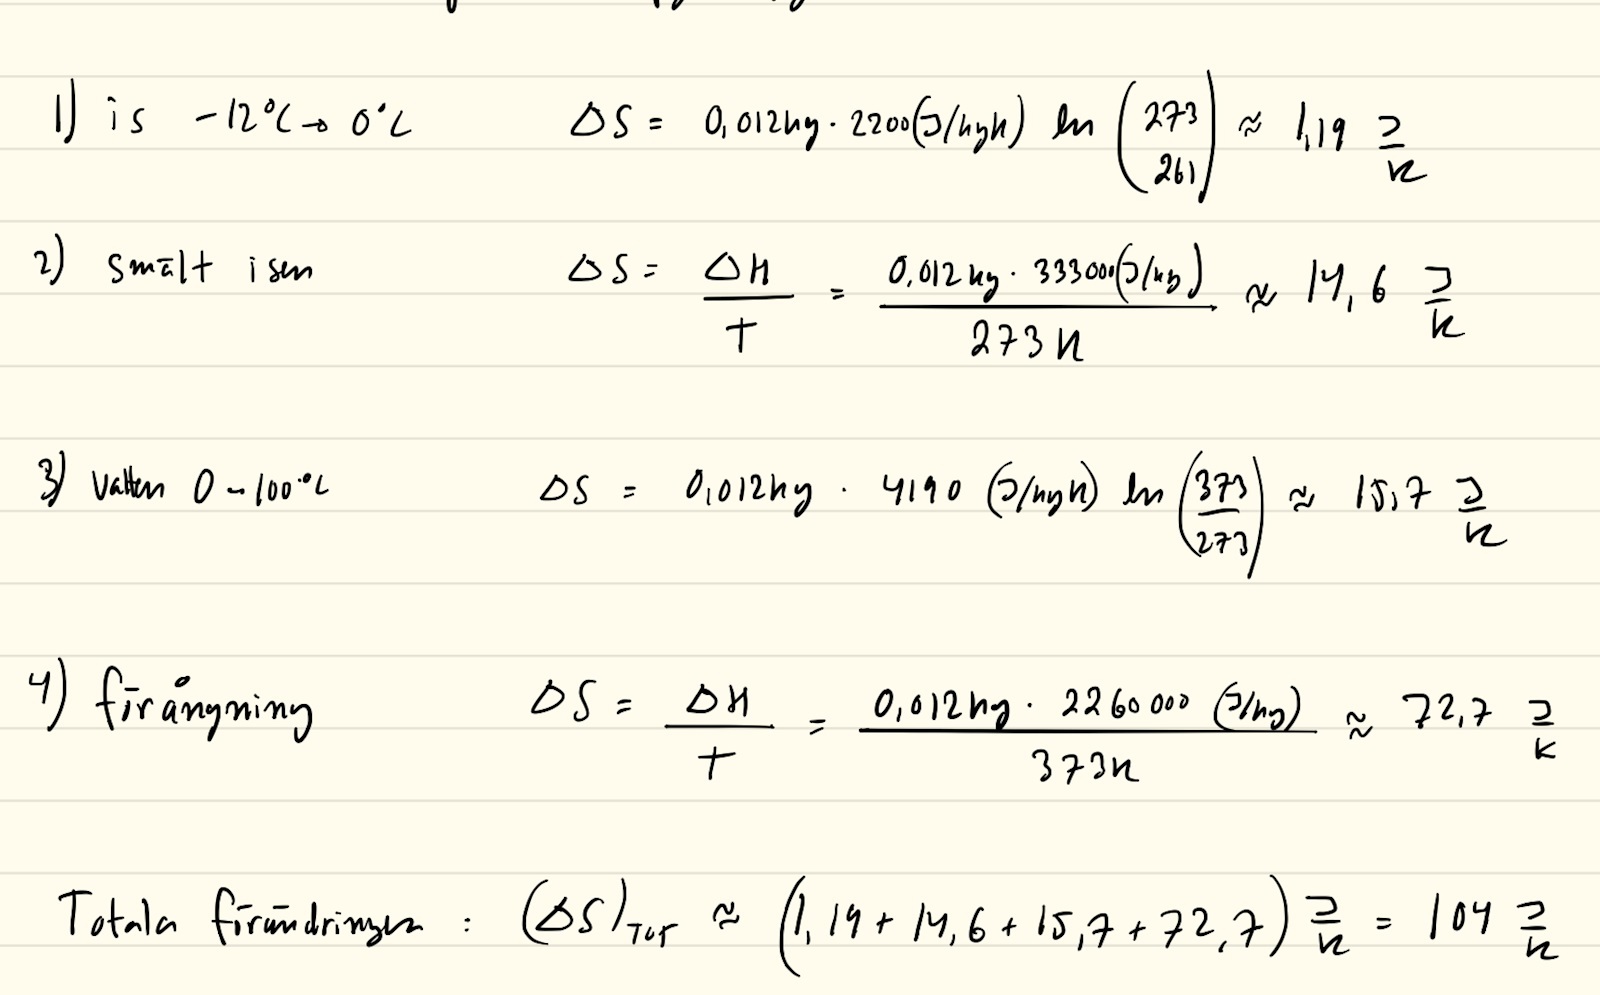 1) is -12°C → 0°C ΔS = 0,012kg · 2200(J/kgK) ln (273/261) ≈ 1,19 J/K
2) smält isen ΔS = ΔH/T = 0,012kg · 333000(J/kg)/273K ≈ 14,6 J/K
3) vatten 0-100°C ΔS = 0,012kg · 4190 (J/kgK) ln (373/273) ≈ 15,7 J/K
4) förångning ΔS = ΔH/T = 0,012kg · 2260000 (J/kg)/373K ≈ 72,7 J/K
Totala förändringen : (ΔS)TOT ≈ (1,19 + 14,6 + 15,7 + 72,7) J/K = 104 J/K